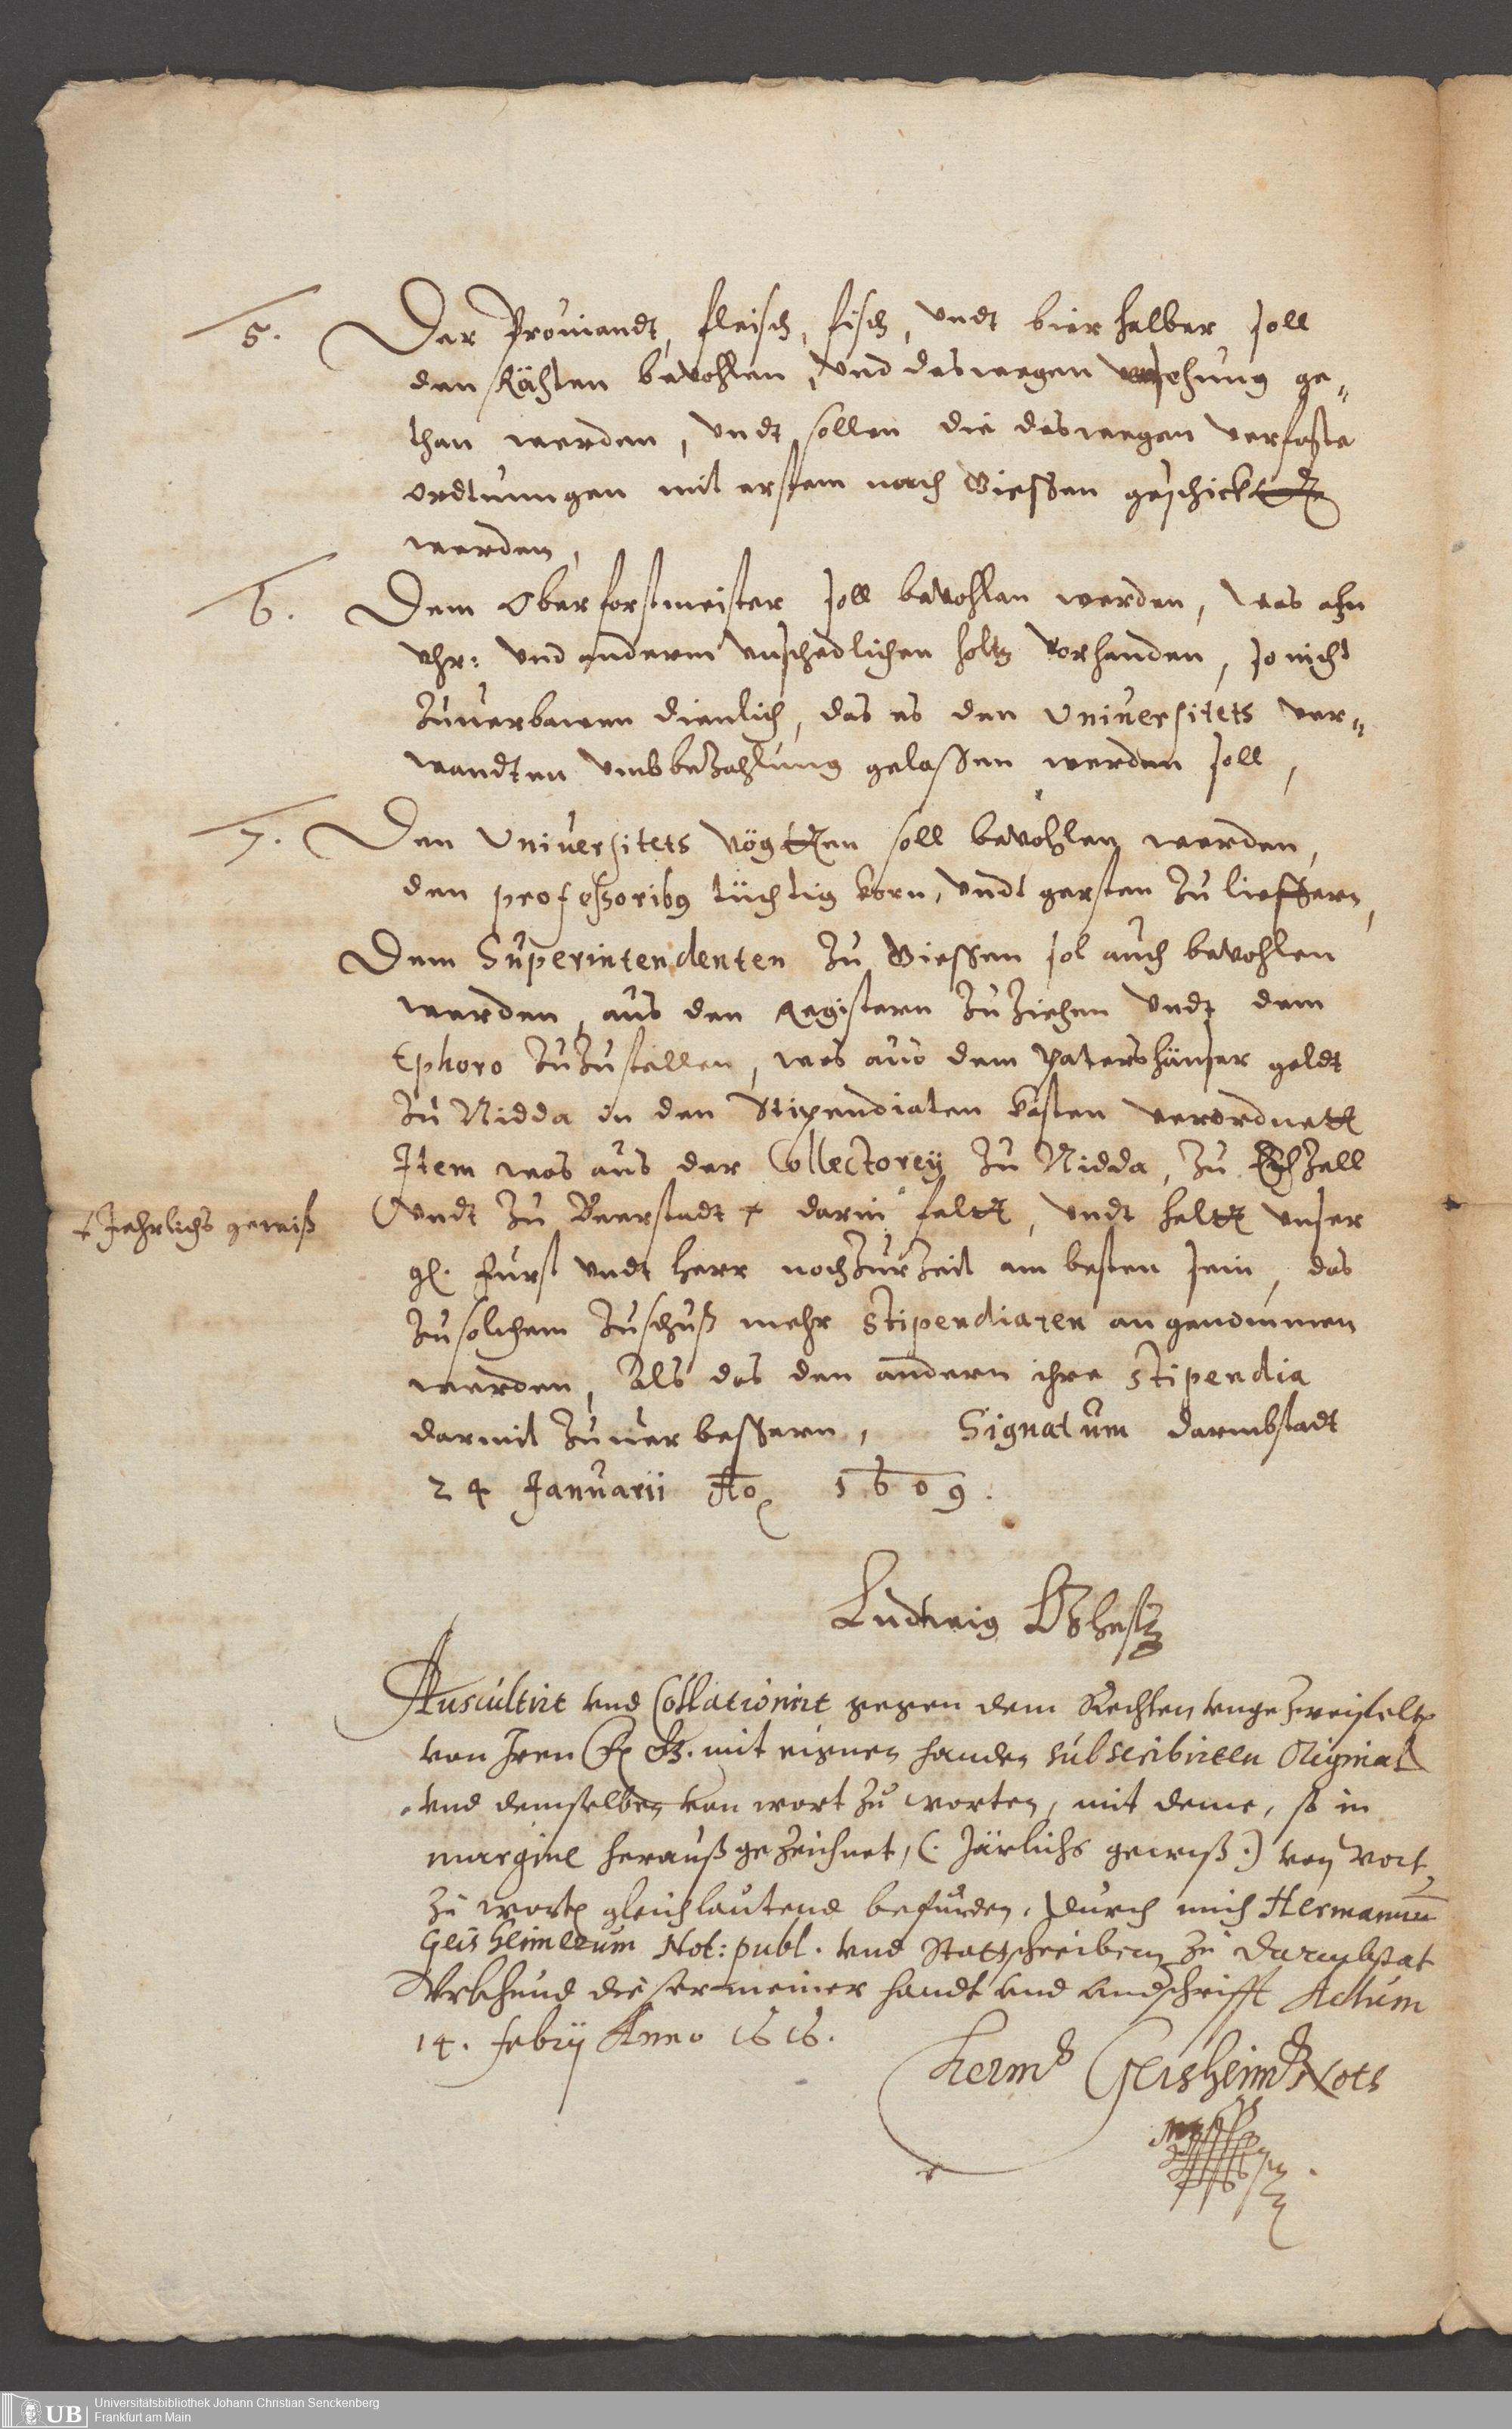 5. Der Prouiandt, fleisch, fisch, vndt bier halber soll
den Räthen bevohlen, vnd deswegen versehung ge„
than werden, vndt sollen die deswegen verfaste
ordtnungen mit erstem nach Giessen geschickt
werden,
6. Dem Oberforstmeister soll bevohlen werden, was ahn
Vhr: vnd anderm vnschedlichen holtz vorhanden, so nicht
zuuerbawen dienlich, das es den Vniversitets ver„
wandten vmb bezahlung gelassen werden soll,
7. Den Vniversitets vögtten soll bevohlen werden,
den professoribus tüchtig korn, vndt gersten zu lieffern,
Dem Superintendenten zu Giessen sol auch bevohlen
werden, aus den Registern zuziehen vndt dem
Ephoro zuzustellen, was aus dem Patershäuser geldt
zu Nidda in den Stipendiaten kasten verordnett
Item was aus der Collectorey zu Nidda, zu Echzell
+ Jehrlichs gewiß
vndt zu Beerstadt + darin feltt, vndt heltt vnser
gl. Furst vndt herr noch zur Zeit am besten sein, das
zu solchem zuschuß mehr Stipendiaten angenommen
werden, Als das den andern ihre Stipendia
darmit zuuerbessern, Signatum Darmbstadt
24 Januarii Ao 1609.
Ludwig LzHess
Auscultirt vnd Collationirt gegen dem Rechten vngezweifelten
von Iren F. G. mit eignen handen subscribirten Original
vnd demselben von wort zu worten, mit deme, so in
margine herauß gezeichnet, (. Järlichs gewiß .) von wort
zu wort gleichlautend befunden, durch mich Hermannum
Geisheimerum Not: publ. vnd Stattschreibern zu Darmbstat
Vrkhund dieser meiner handt vnd vndschrifft Actum
14. febrij Anno 1616.
Herms Geisheimer Nots
UB
Universitätsbibliothek Johann Christian Senckenberg
Frankfurt am Main